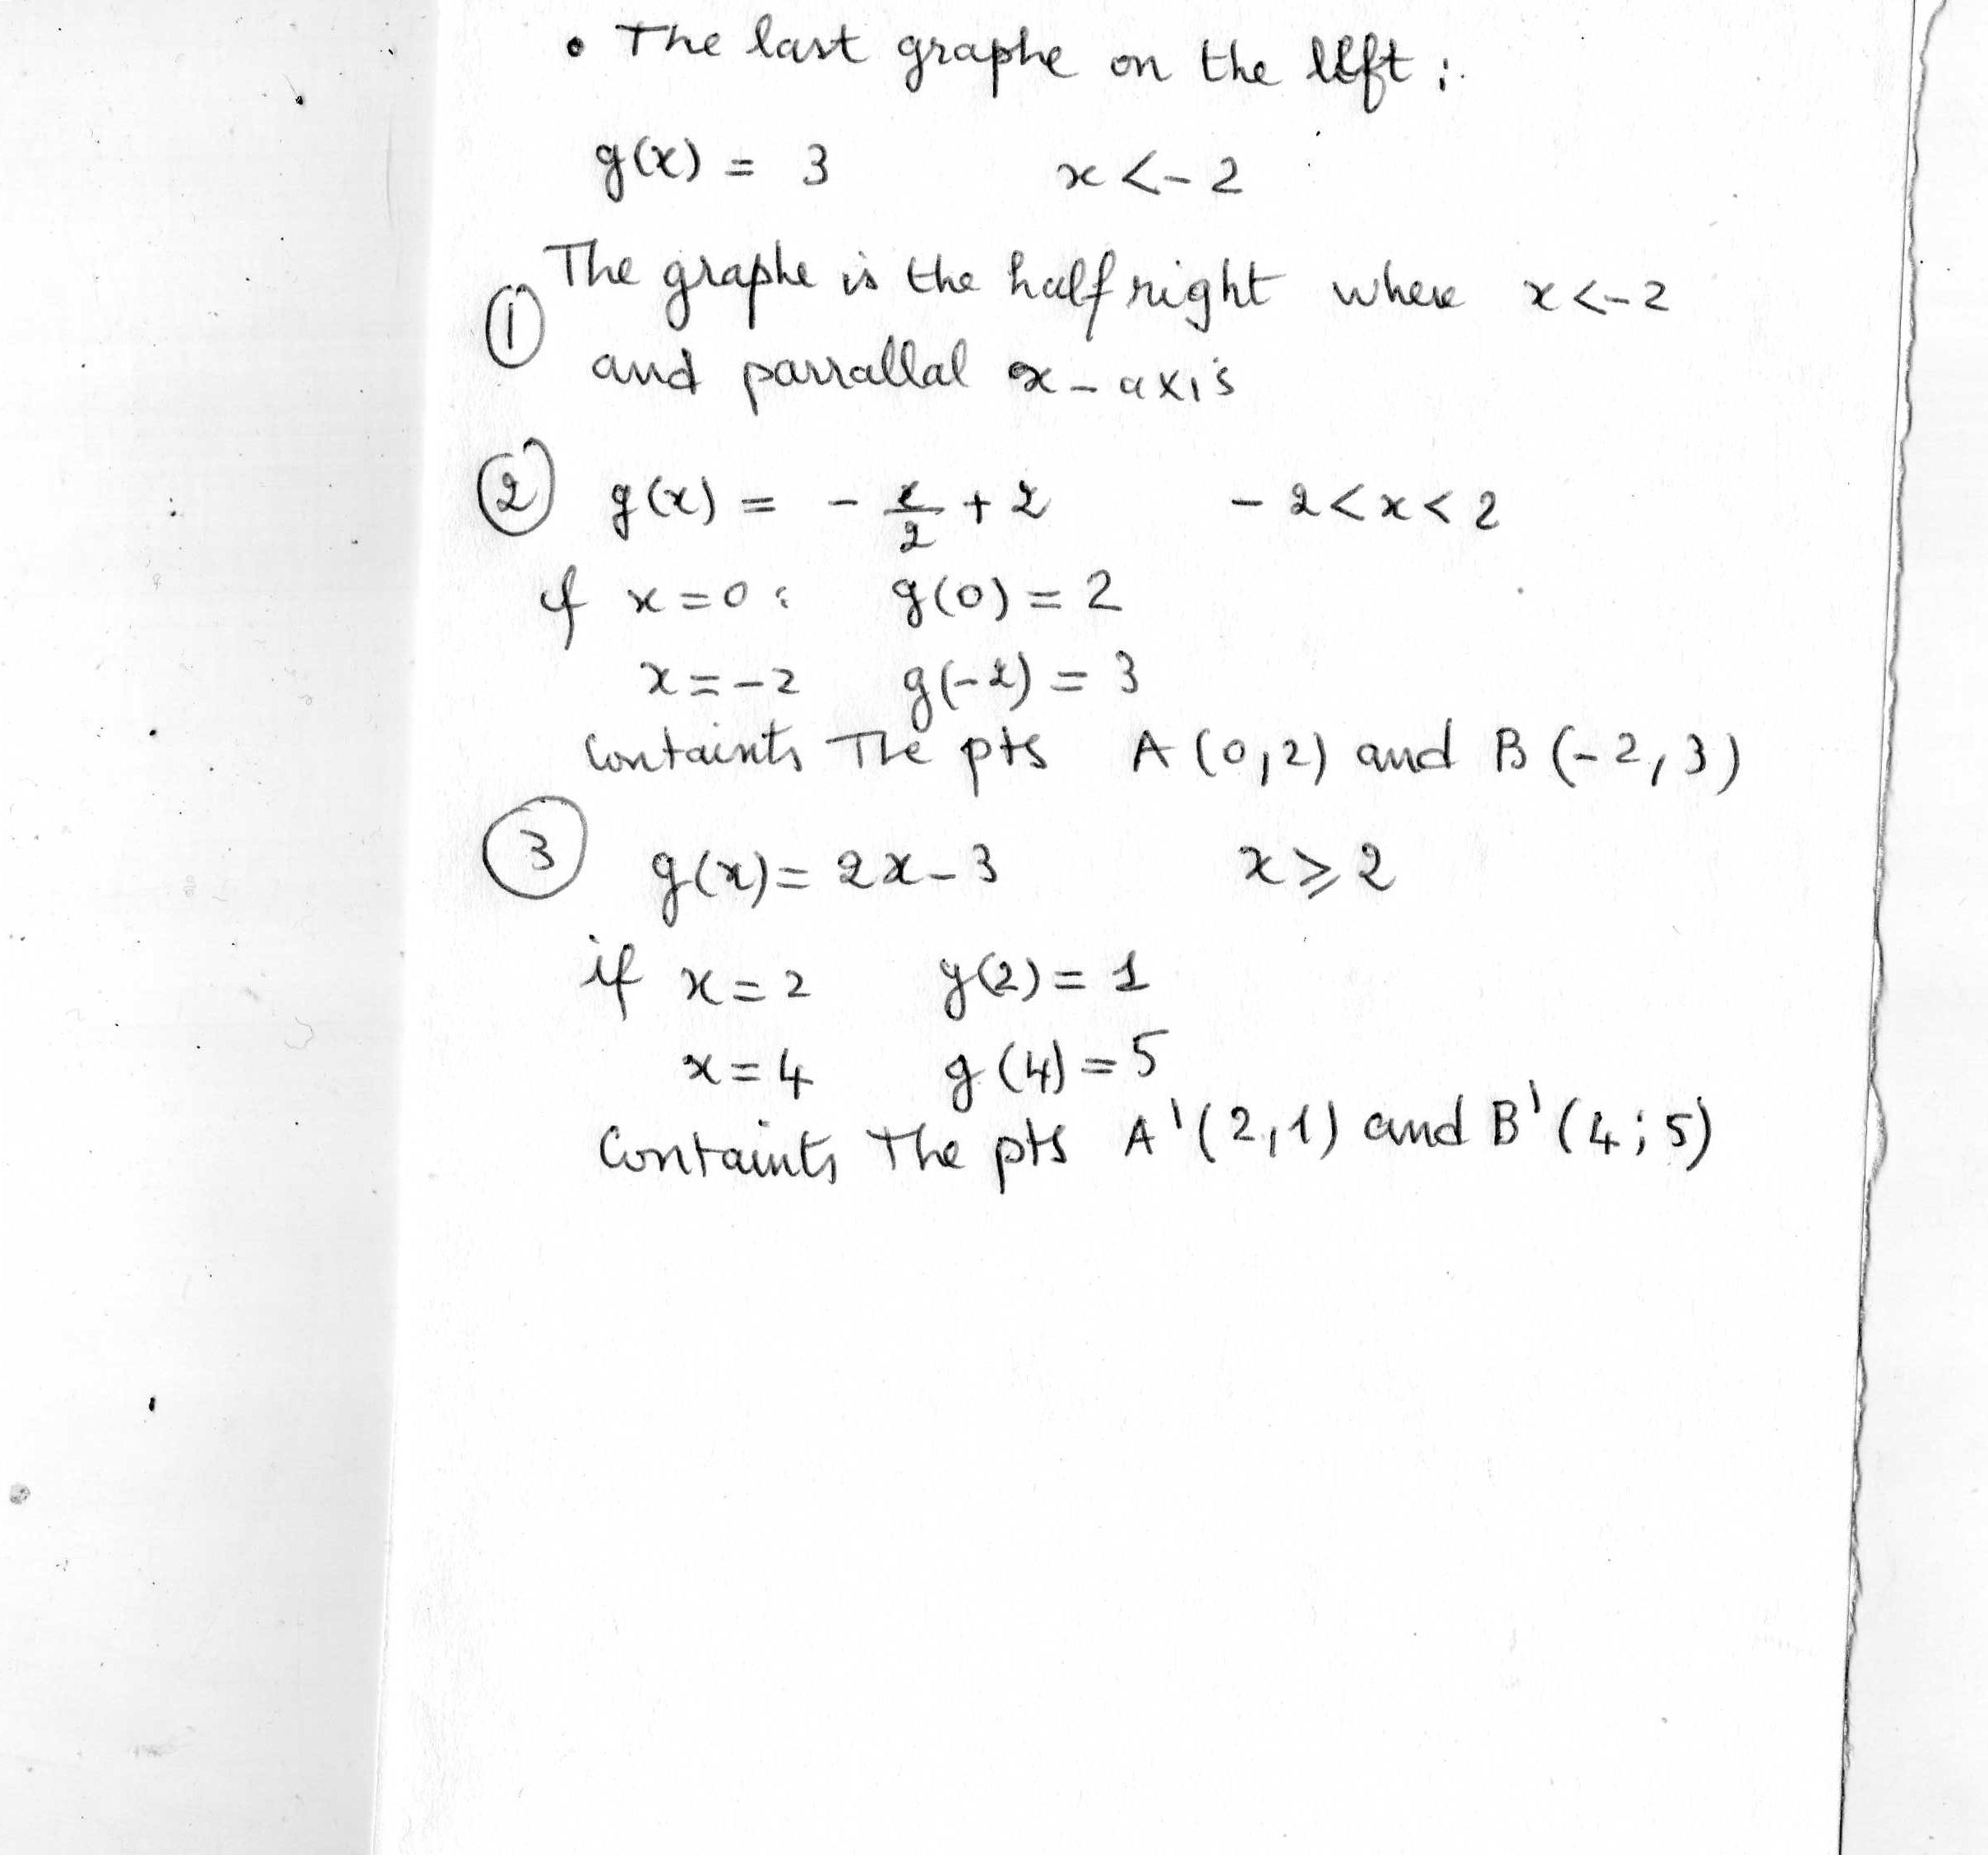 • The last graphe on the left :
g(x) = 3 x < - 2
The graphe is the half right where x < - 2
① and parrallal x - axis
② g(x) = - x/2 + 2 - 2 < x < 2
if x = 0 : g(0) = 2
x = - 2 g(-2) = 3
Containts The pts A (0,2) and B (-2,3)
③ g(x) = 2x - 3 x ⩾ 2
if x = 2 g(2) = 1
x = 4 g(4) = 5
Containts The pts A'(2,1) and B'(4;5)